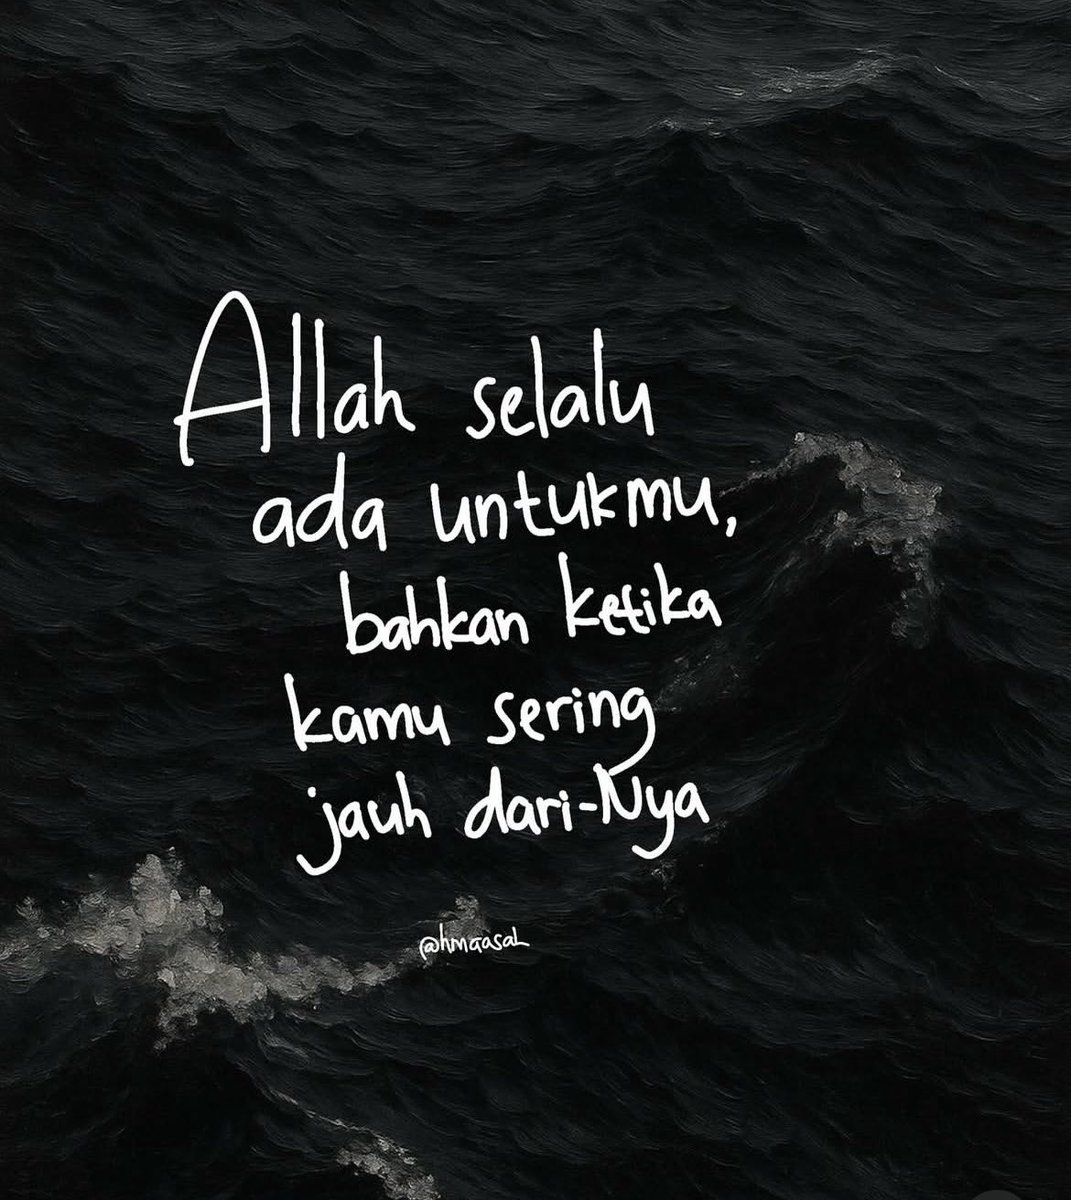 Allah selalu
ada untukmu,
bahkan ketika
kamu sering
jauh dari-Nya
@hmaasal